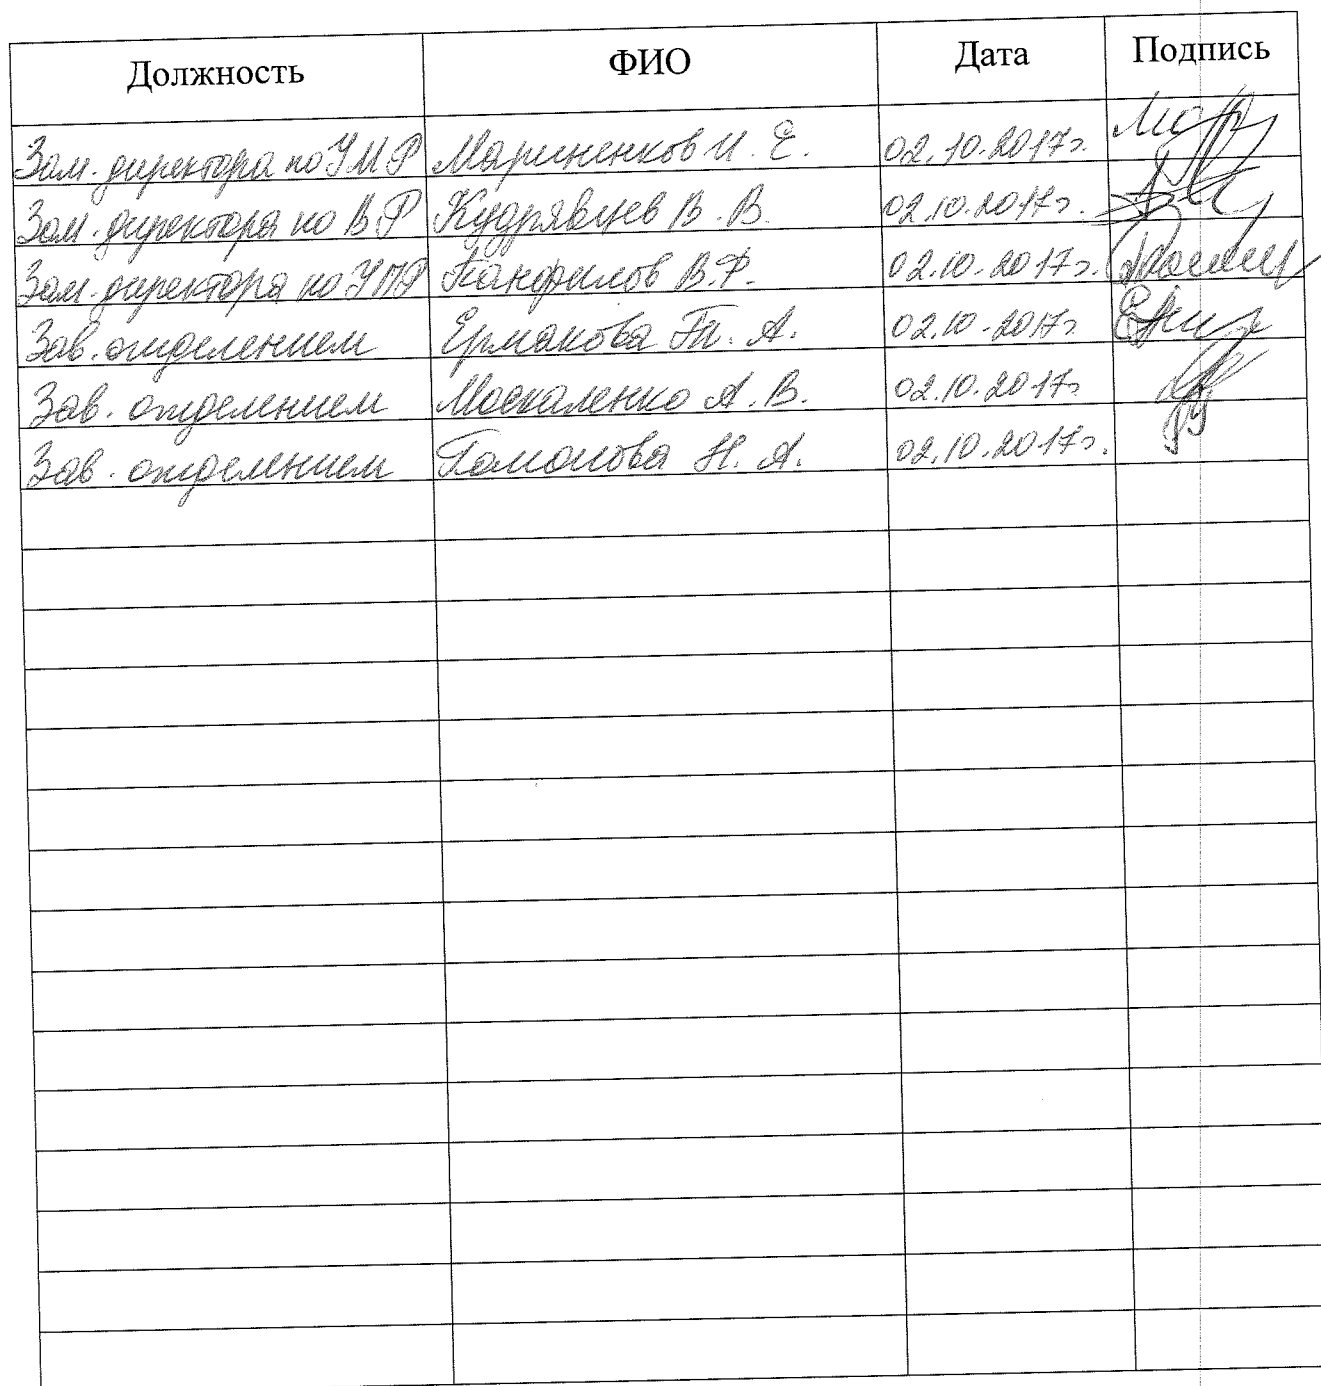 Должность ФИО Дата Подпись
Зам. директора по УМР Мариненков И. Е. 02.10.2017г.
Зам. директора по ВР Кудрявцев В. В. 02.10.2017г.
Зам. директора по УПР Панфилов В.Ф. 02.10.2017г.
Зав. отделением Ермакова Т. А. 02.10.2017г.
Зав. отделением Москаленко А. В. 02.10.2017г.
Зав. отделением Н. А. 02.10.2017г.